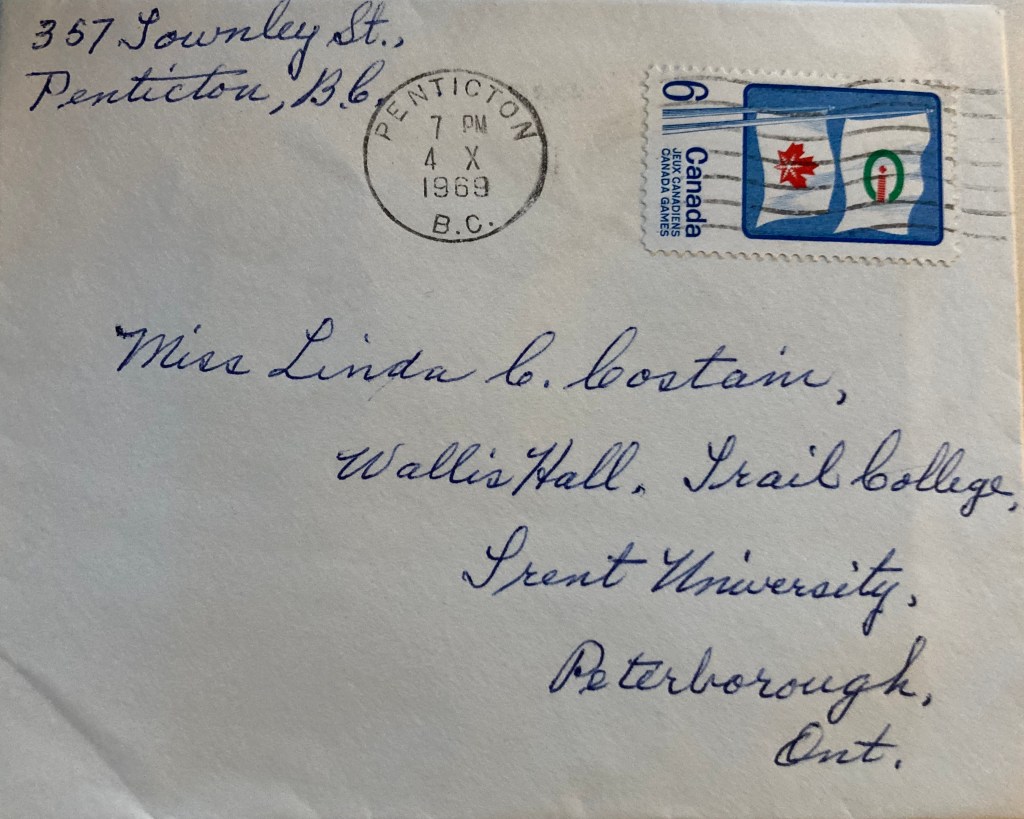 357 Townley St.,
Penticton, B.C.
PENTICTON
7 PM
4 X
1969
B.C.
6
Canada
JEUX CANADIENS
CANADA GAMES
Miss Linda C. Costain,
Wallis Hall, Trail College,
Trent University,
Peterborough,
Ont.